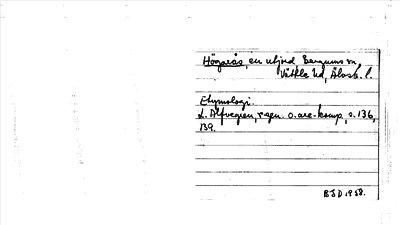 Högarås, en utjord Bergums sn,
Vättle hd, Älvsb. l.
Etymologi.
L. Alfvegren, r-gen. o. are-komp, s. 136,
139.
BJD 1958.